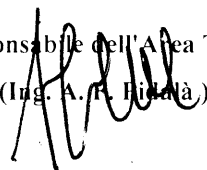 onsabile dell'Area T
(Ing. A. R. Fidalà )